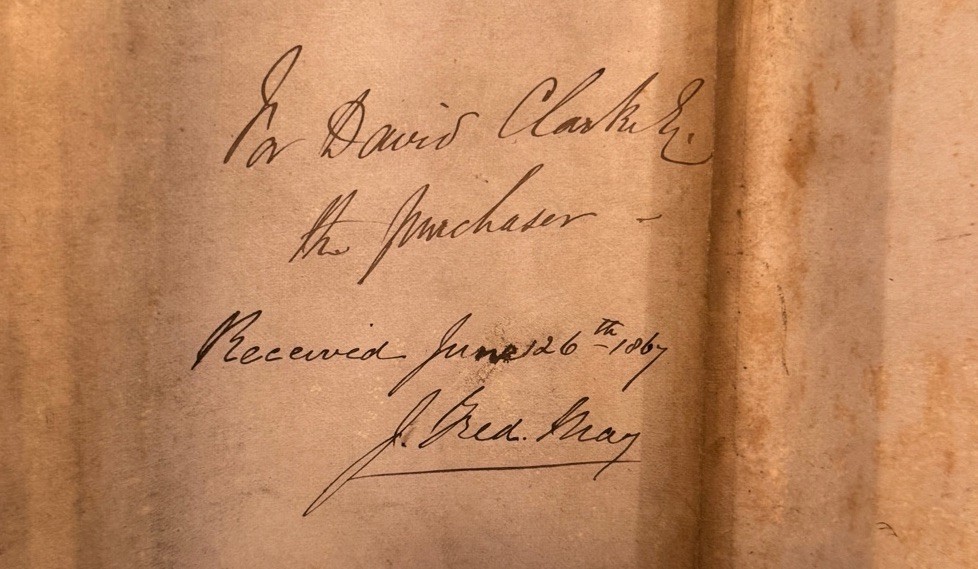 For David Clarke Esq.
the purchaser -
Received June 26th 1867
J. Fred. May